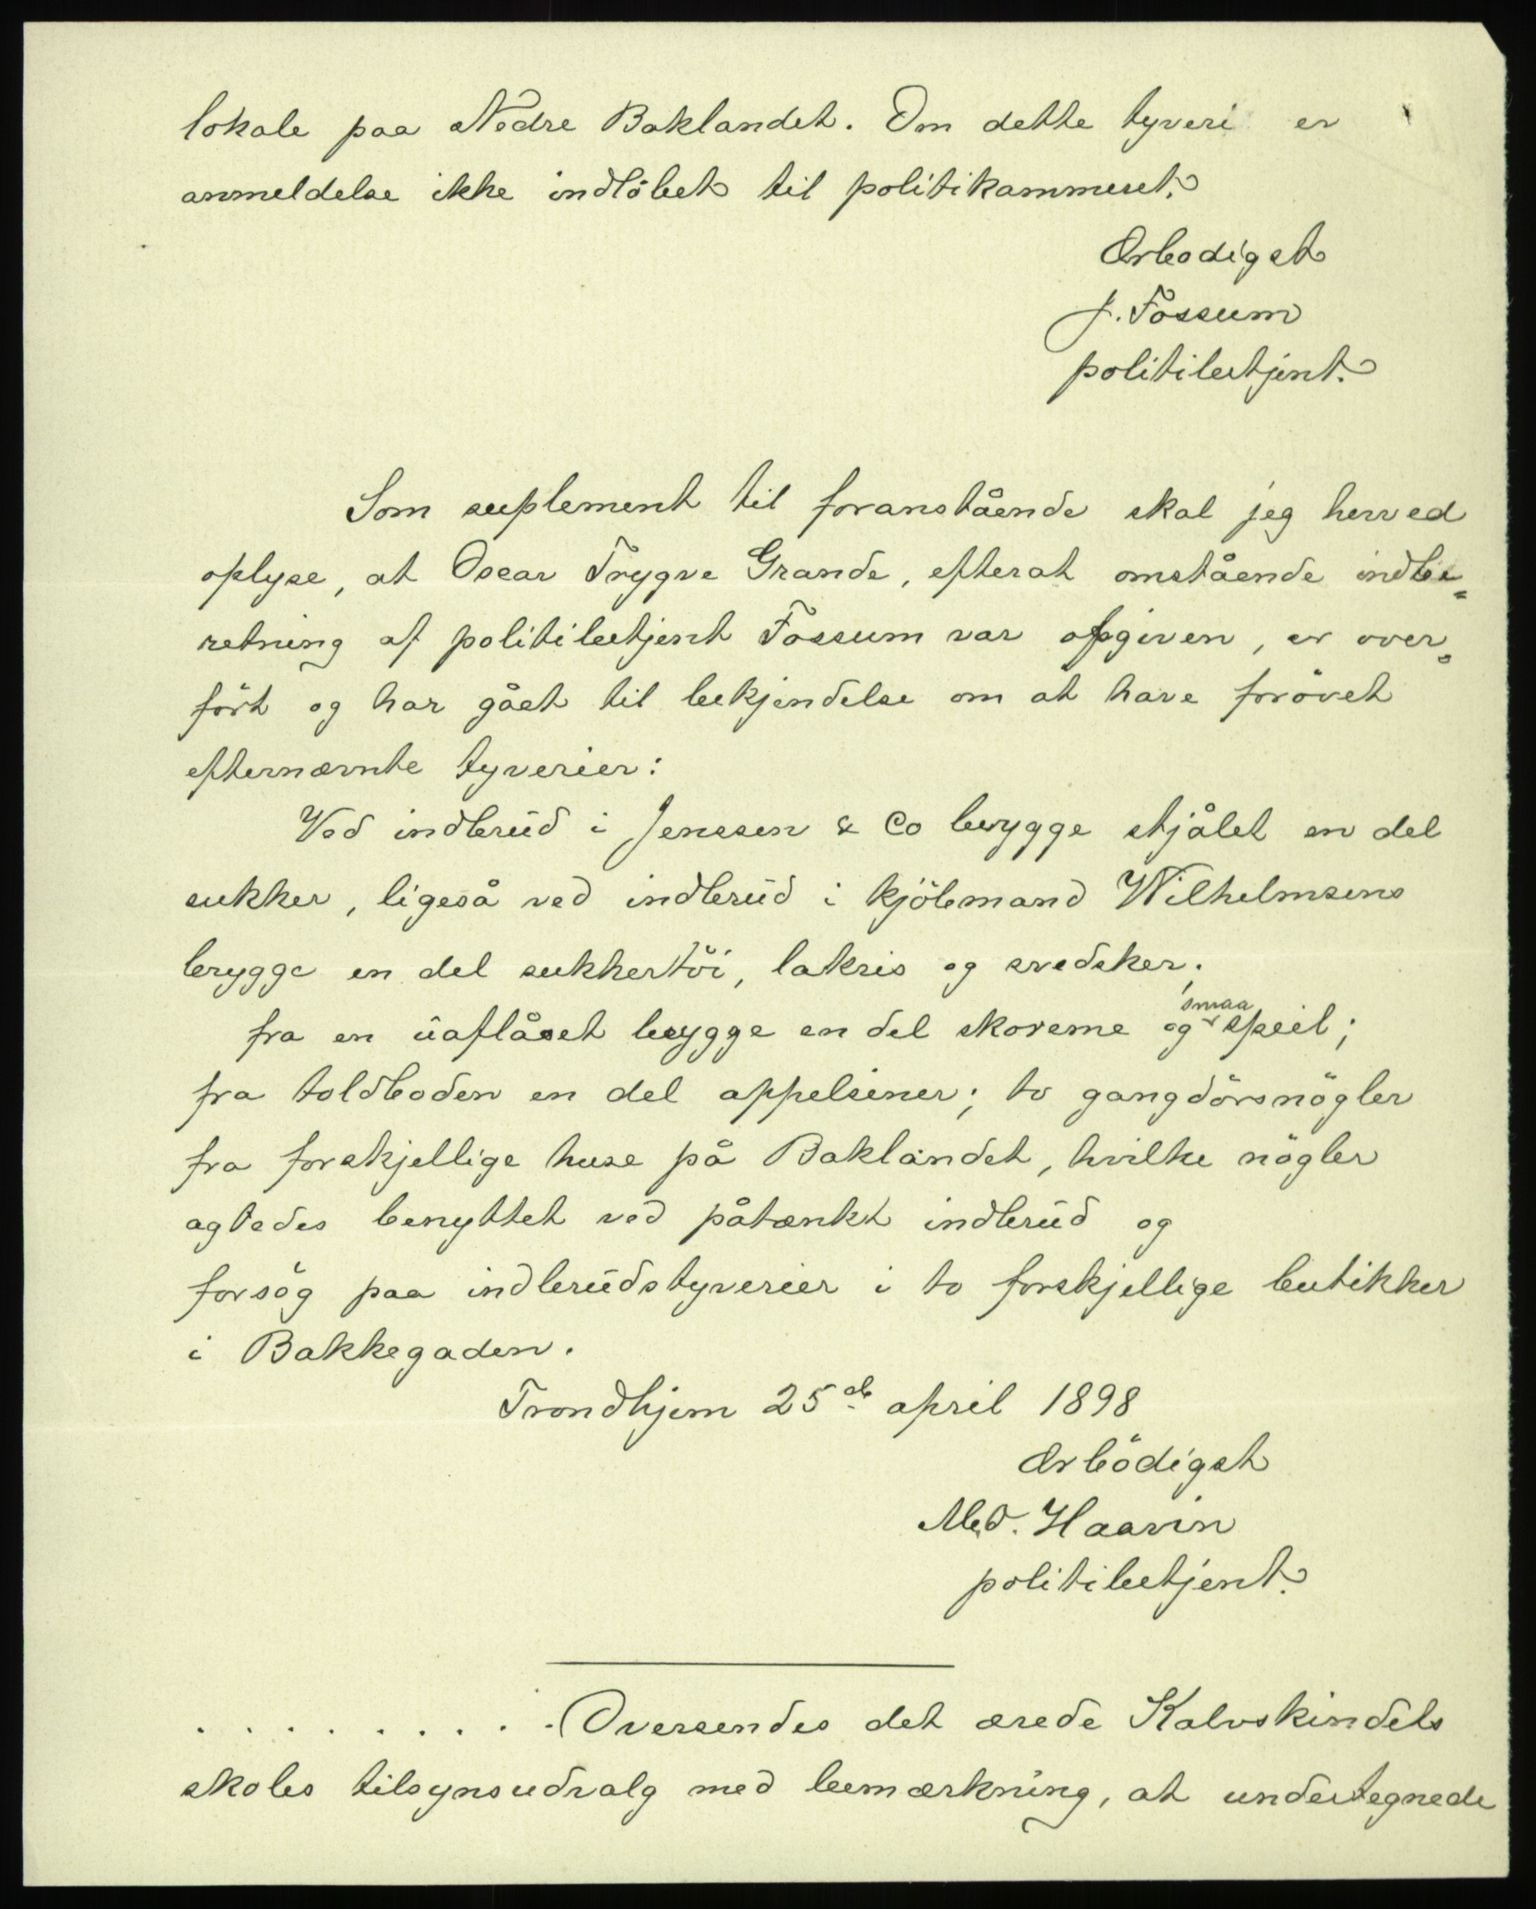 lokale paa Nedre Baklandet. Om dette tyveri er
anmeldelse ikke indløbet til politikammeret.
Ærbødigst
J. Fossum
politibetjent.
Som suplement til foranstående skal jeg herved
oplyse, at Oscar Trygve Grande, efterat omstående indbe-
retning af politibetjent Fossum var opgiven, er over-
ført og har gået til bekjendelse om at have forøvet
efternævnte tyverier:
Ved indbrud i Jenssen & Co brygge stjålet en del
sukker, ligeså ved indbrud i kjöbmand Wilhelmsens
brygge en del sukkertöi, lakris og svedsker;
fra en uaflåset brygge en del skoreme og smaa speil;
fra toldboden en del appelsiner; to gangdörsnögler
fra forskjellige huse på Baklandet, hvilke nögler
agtedes benyttet ved påtænkt indbrud og
forsög paa indbrudstyverier i to forskjellige butikker
i Bakkegaden.
Trondhjem 25de april 1898
Ærbödigst
M.D. Haavin
politibetjent.
. . . . . . . . . Oversendes det ærede Kalvskindets
skoles tilsynsudvalg med bemærkning, at undertegnede